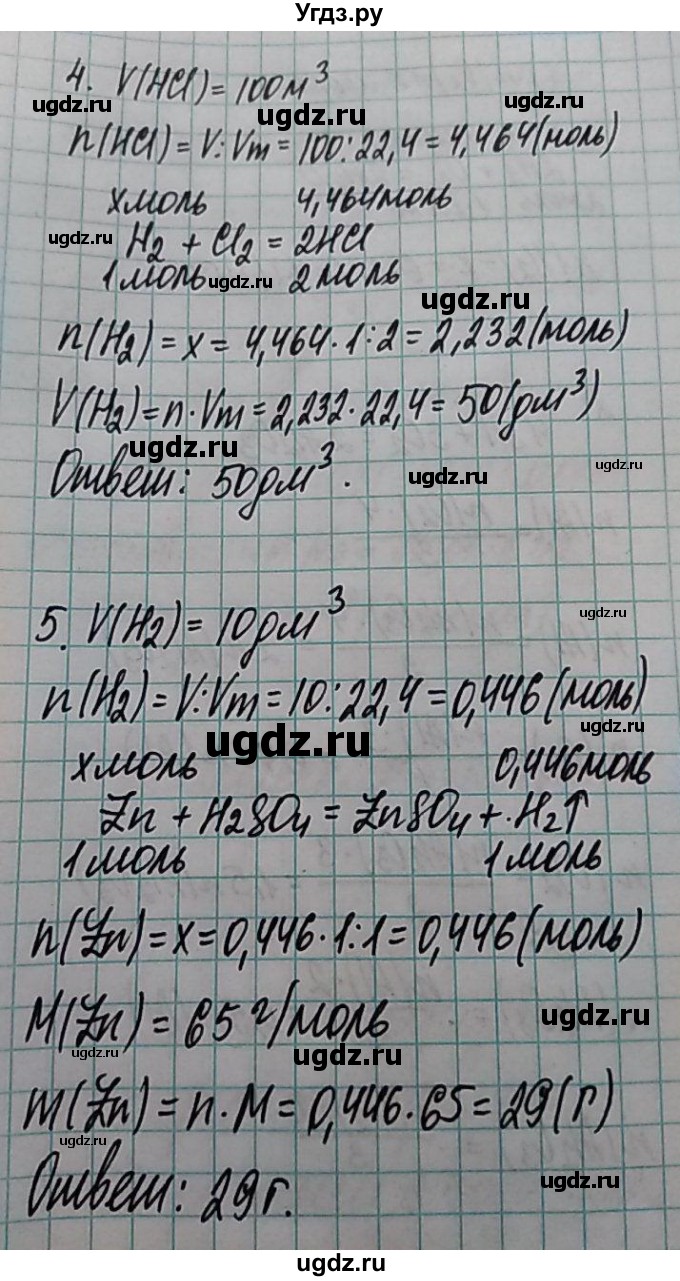 Угдз.ру
4. V(HCl) = 100м³
ugdz.ru ugdz.ru
ugdz.ru
n(HCl) = V:Vm = 100:22,4 = 4,464(моль)
xмоль 4,464моль
ugdz.ru
H₂ + Cl₂ = 2HCl
1моль 2моль
ugdz.ru ugdz.ru
n(H₂) = x = 4,464·1:2 = 2,232(моль)
V(H₂) = n·Vm = 2,232·22,4 = 50(дм³)
ugdz.ru ugdz.ru
Ответ: 50дм³.
ugdz.ru
5. V(H₂) = 10дм³
ugdz.ru
n(H₂) = V:Vm = 10:22,4 = 0,446(моль)
ugdz.ru ugdz.ru
xмоль 0,446моль
Zn + H₂SO₄ = ZnSO₄ + H₂↑
1моль 1моль
n(Zn) = x = 0,446·1:1 = 0,446(моль)
M(Zn) = 65г/моль
ugdz.ru
ugdz.ru ugdz.ru
m(Zn) = n·M = 0,446·65 = 29(г)
ugdz.ru
Ответ: 29г.
ugdz.ru
ugdz.ru